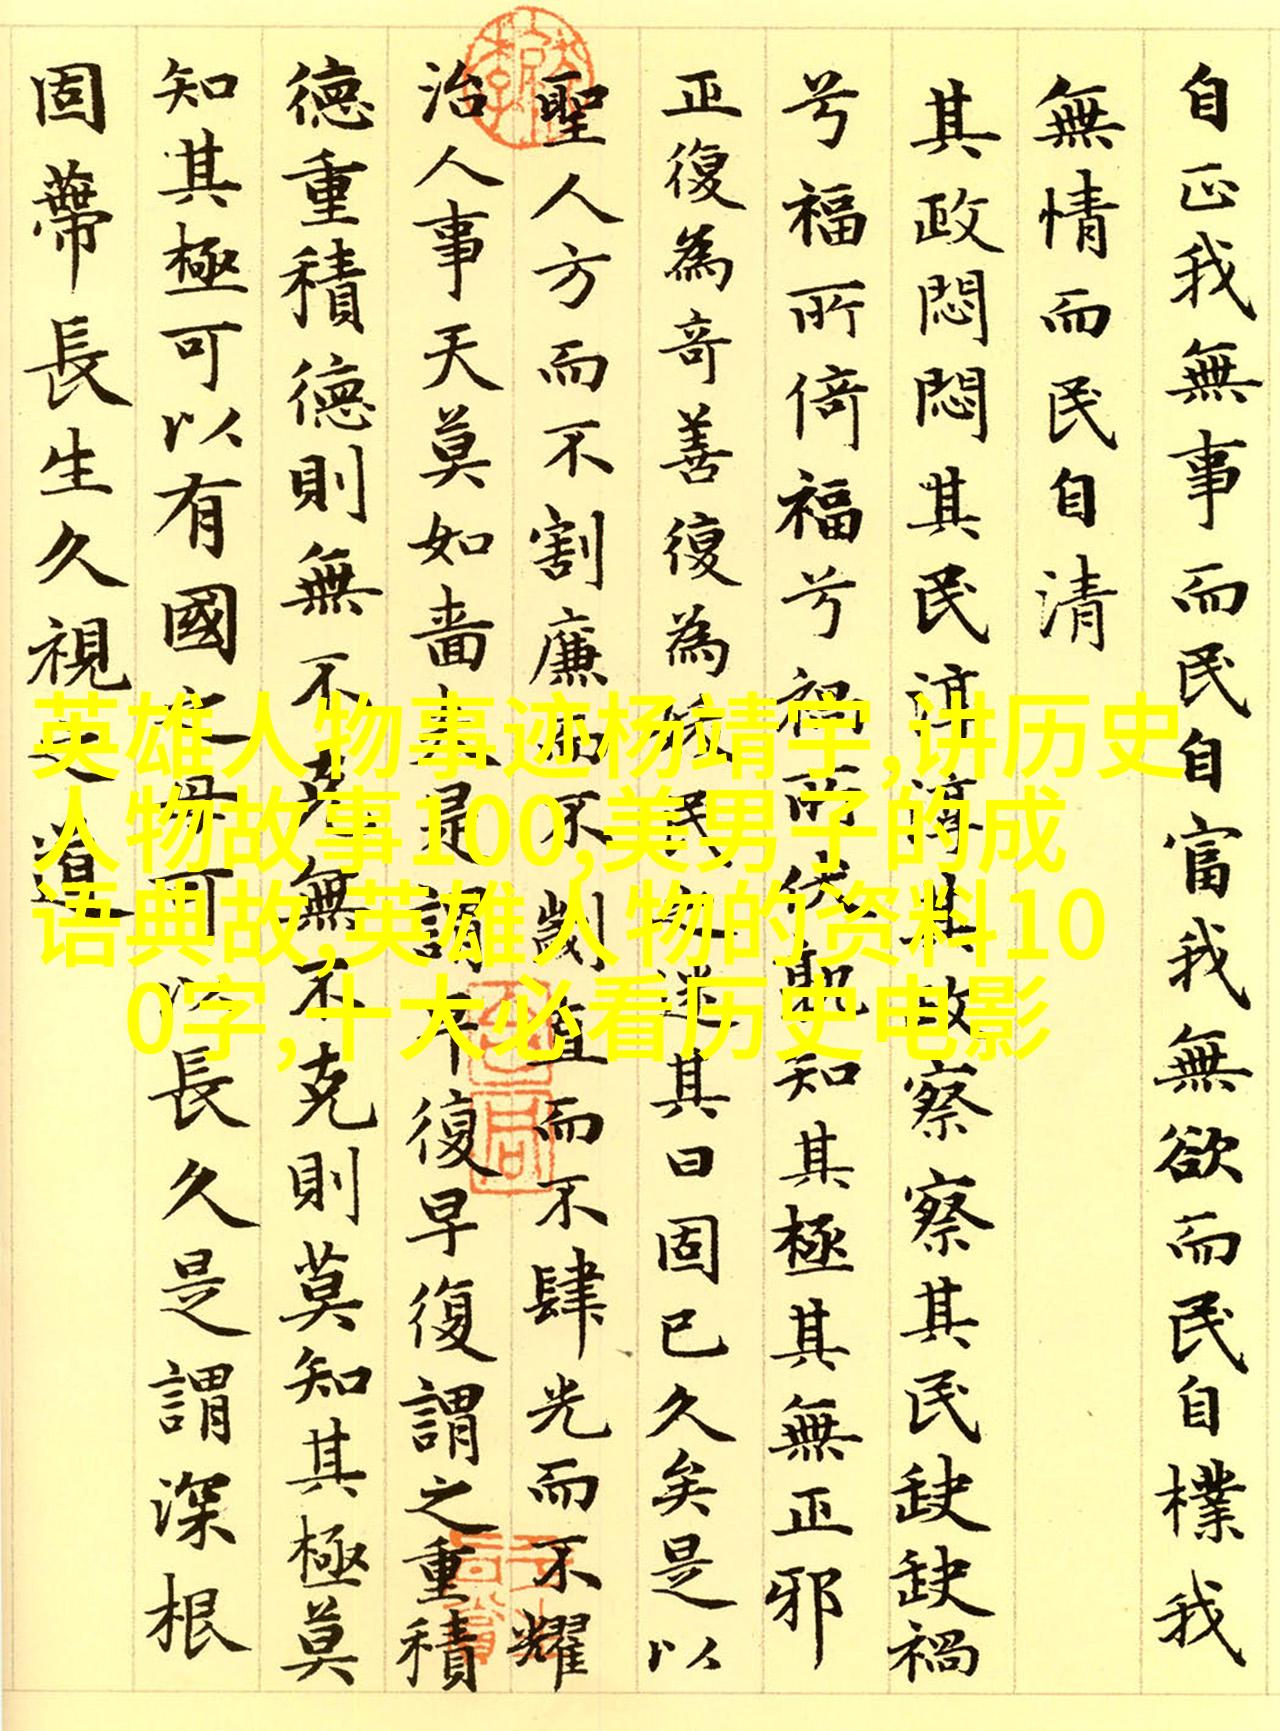 自正我無事而民自富我無欲而民自樸我
無情而民自清
其政悶悶其民淳淳其政察察其民缺缺禍
兮福所倚福兮禍所伏孰知其極其無正邪
正復為奇善復為妖民之迷其日固已久矣是以
聖人方而不割廉而不劌直而不肆光而不耀
治人事天莫如嗇夫是謂早復早復謂之重積
德重積德則無不克無不克則莫知其極莫
知其極可以有國之母可以長久是謂深根
固蔕長生久視之道
英雄人物事迹杨靖宇,讲历史
人物故事100,美男子的成
语典故,英雄人物的资料10
0字,十大必看历史电影